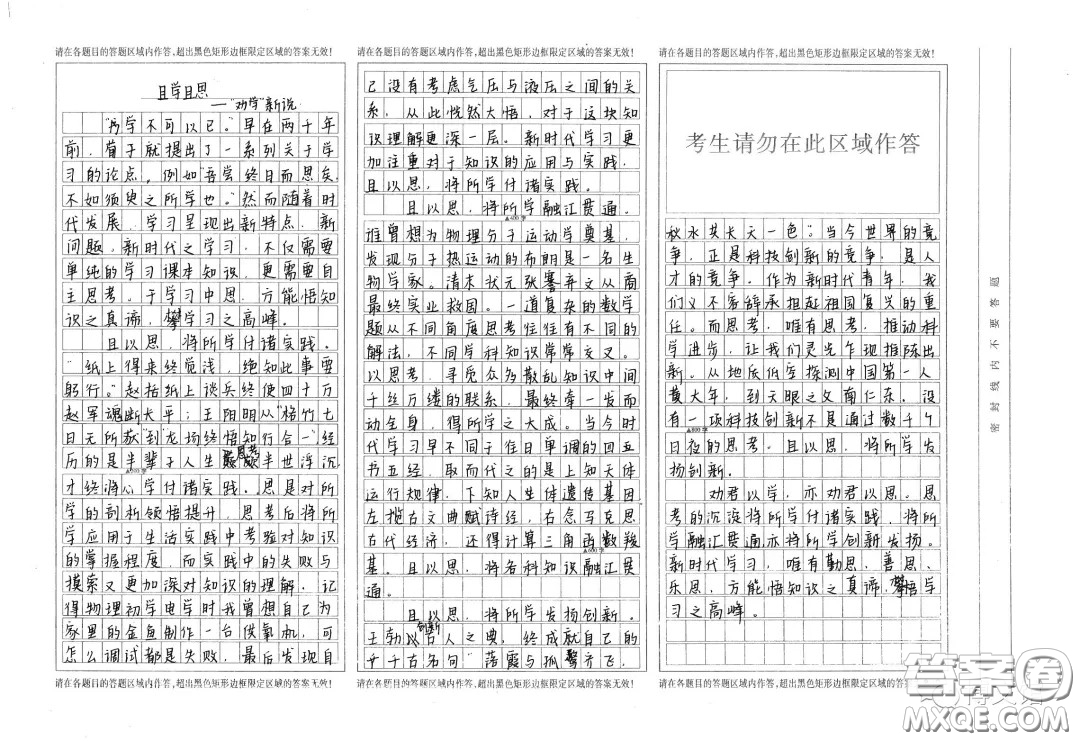 请在各题目的答题区域内作答,超出黑色矩形边框限定区域的答案无效!
且学且思
——“劝学”新说
“学不可以已。”早在两千年
前，荀子就提出了一系列关于学
习的论点，例如“吾尝终日而思矣，
不如须臾之所学也。”然而随着时
代发展，学习呈现出新特点、新
问题，新时代之学习，不仅需要
单纯的学习课本知识，更需要自
主思考。于学习中思，方能悟知
识之真谛，攀学习之高峰。
且以思，将所学付诸实践。
“纸上得来终觉浅，绝知此事要
躬行。”赵括纸上谈兵终使四十万
赵军魂断长平；王阳明从“格竹七
日无所获”到“龙场终悟知行合一”经
历的是半辈子人生思考半世浮沉，
▲200字
才终将心学付诸实践。思是对所
学的剖析领悟提升，思考后将所
学应用于生活实践中考验对知识
的掌握程度，而实践中的失败与
摸索又更加深对知识的理解，记
得物理初学电学时我曾想自己为
家里的金鱼制作一台供氧机，可
怎么调试都是失败，最后发现自
请在各题目的答题区域内作答,超出黑色矩形边框限定区域的答案无效!
请在各题目的答题区域内作答,超出黑色矩形边框限定区域的答案无效!
己没有考虑气压与液压之间的关
系，从此恍然大悟，对于这块知
识理解更深一层。新时代学习更
加注重对于知识的应用与实践，
且以思，将所学付诸实践。
且以思，将所学融汇贯通。
▲400字
谁曾想为物理分子运动学奠基，
发现分子热运动的布朗是一名生
物学家。清末状元张謇弃文从商
最终实业救国。一道复杂的数学
题从不同角度思考往往有不同的
解法，不同学科知识常常交叉。
以思考，寻觅众多散乱知识中间
千丝万缕的联系，最终牵一发而
动全身，得所学之大成。当今时
代学习早不同于往日单调的四五
书五经，取而代之的是上知天体
运行规律，下知人生体遗传基因
左揽古文曲赋诗经，右念马克思
古代经济，还得计算三角函数羧
▲600字
基。且以思，将各科知识融汇贯
通。
且以思，将所学发扬创新。
王勃以创新古人之典，终成就自己的
千古名句“落霞与孤鹜齐飞，
请在各题目的答题区域内作答,超出黑色矩形边框限定区域的答案无效!
请在各题目的答题区域内作答,超出黑色矩形边框限定区域的答案无效!
考生请勿在此区域作答
秋水共长天一色”。当今世界的竞
争，正是科技创新的竞争，是人
才的竞争。作为新时代青年，我
们义不容辞承担起祖国复兴的重
任。而思考，唯有思考，推动科
学进步，让我们灵光乍现推陈出
新。从地质低空探测中国第一人
黄大年，到天眼之父南仁东，没
有一项科技创新不是通过数千个
▲800字
日夜的思考。且以思，将所学发
扬创新。
劝君以学，亦劝君以思。思
考的沉淀将所学付诸实践，将所
学融汇贯通亦将所学创新发扬。
于学习中，唯有勤思、善思、
乐思，方能悟知识之真谛，攀学
习之高峰。
请在各题目的答题区域内作答,超出黑色矩形边框限定区域的答案
密封线内不要答题
答案圈
MXQE.COM